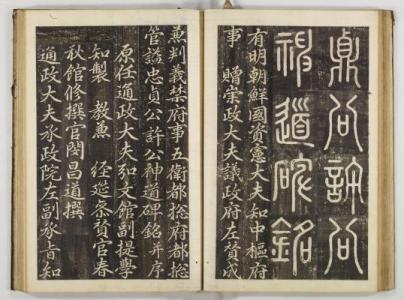 貞公許公
神道碑銘
有明朝鮮國資憲大夫知中樞府
事 贈崇政大夫議政府左贊成
兼判義禁府事五衛都摠府都摠
管諡忠貞公許公神道碑銘并序
原任通政大夫弘文館副提學
知製 教兼 經筵參贊官春
秋館修撰官閔昌道撰
通政大夫承政院左副承旨知